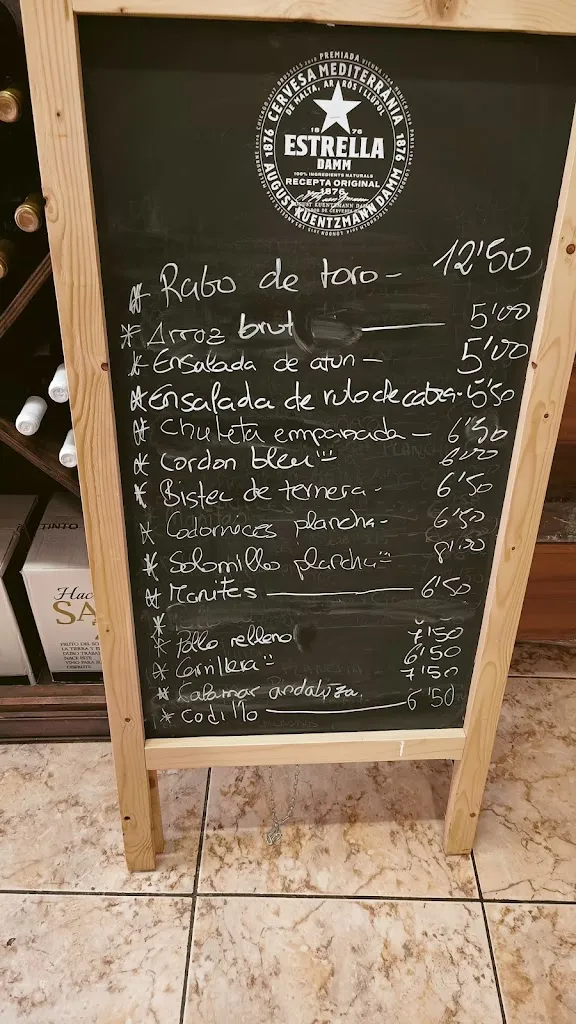 PREMIADA
CERVESA MEDITERRÀNIA
DE MALTA, ARRÒS I LLÚPOL
1876
1876
1876
ESTRELLA
DAMM
100% INGREDIENTS NATURALS
RECEPTA ORIGINAL
1876
AUGUST KUENTZMANN DAMM
* Rabo de toro - 12'50
* Arroz brut — 5'00
* Ensalada de atun - 5'00
* Ensalada de rulo de cabra - 5'50
* Chuleta empanada - 6'50
* Cordon bleu 6'00
* Bistec de ternera - 6'50
* Codornices plancha - 6'50
* Solomillo plancha 8'00
* Manites — 6'50
*
* Pollo relleno 7'50
* Carrillera 6'50
* Calamar andaluza 7'50
* Codillo — 6'50
TINTO
Hac
SA